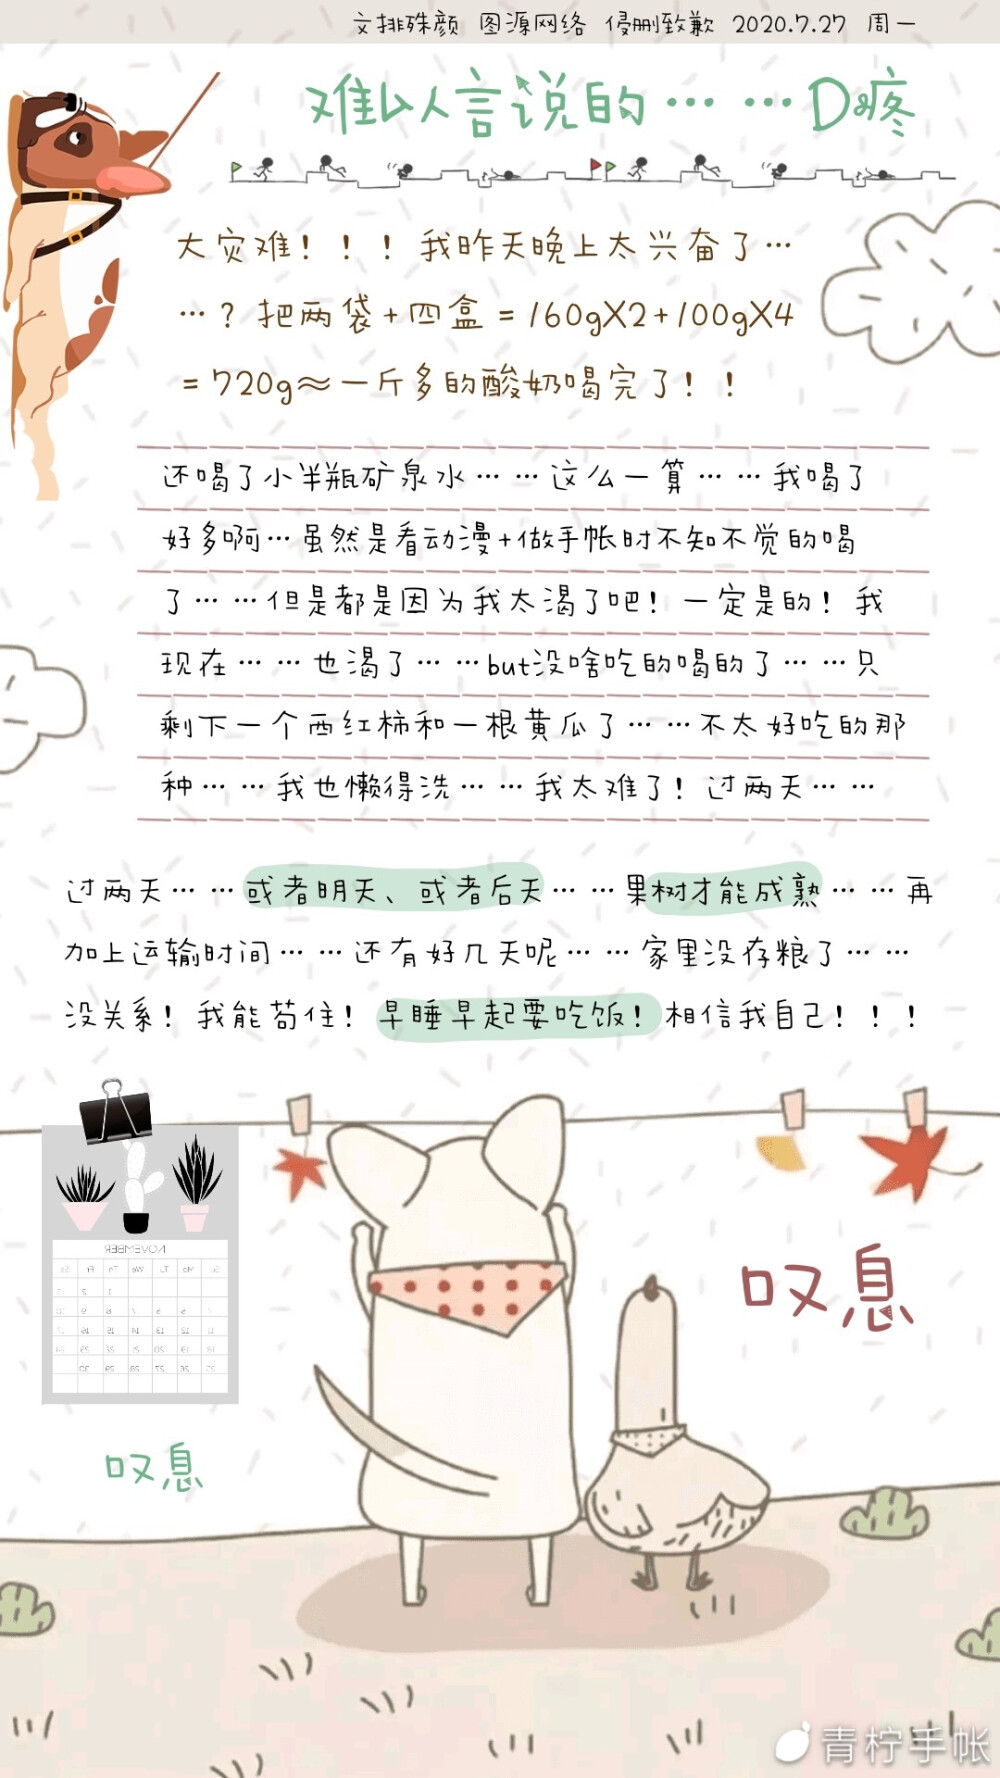 文排殊颜 图源网络 侵删致歉 2020.7.27 周一
难以言说的……D疼
大灾难!!!我昨天晚上太兴奋了…
…?把两袋+四盒=160gX2+100gX4
=720g≈一斤多的酸奶喝完了!!
还喝了小半瓶矿泉水……这么一算……我喝了
好多啊…虽然是看动漫+做手帐时不知不觉的喝
了……但是都是因为我太渴了吧!一定是的!我
现在……也渴了……but没啥吃的喝的了……只
剩下一个西红柿和一根黄瓜了……不太好吃的那
种……我也懒得洗……我太难了!过两天……
过两天……或者明天、或者后天……果树才能成熟……再
加上运输时间……还有好几天呢……家里没存粮了……
没关系!我能苟住!早睡早起要吃饭!相信我自己!!!
NOVEMBER
叹息
叹息
青柠手帐